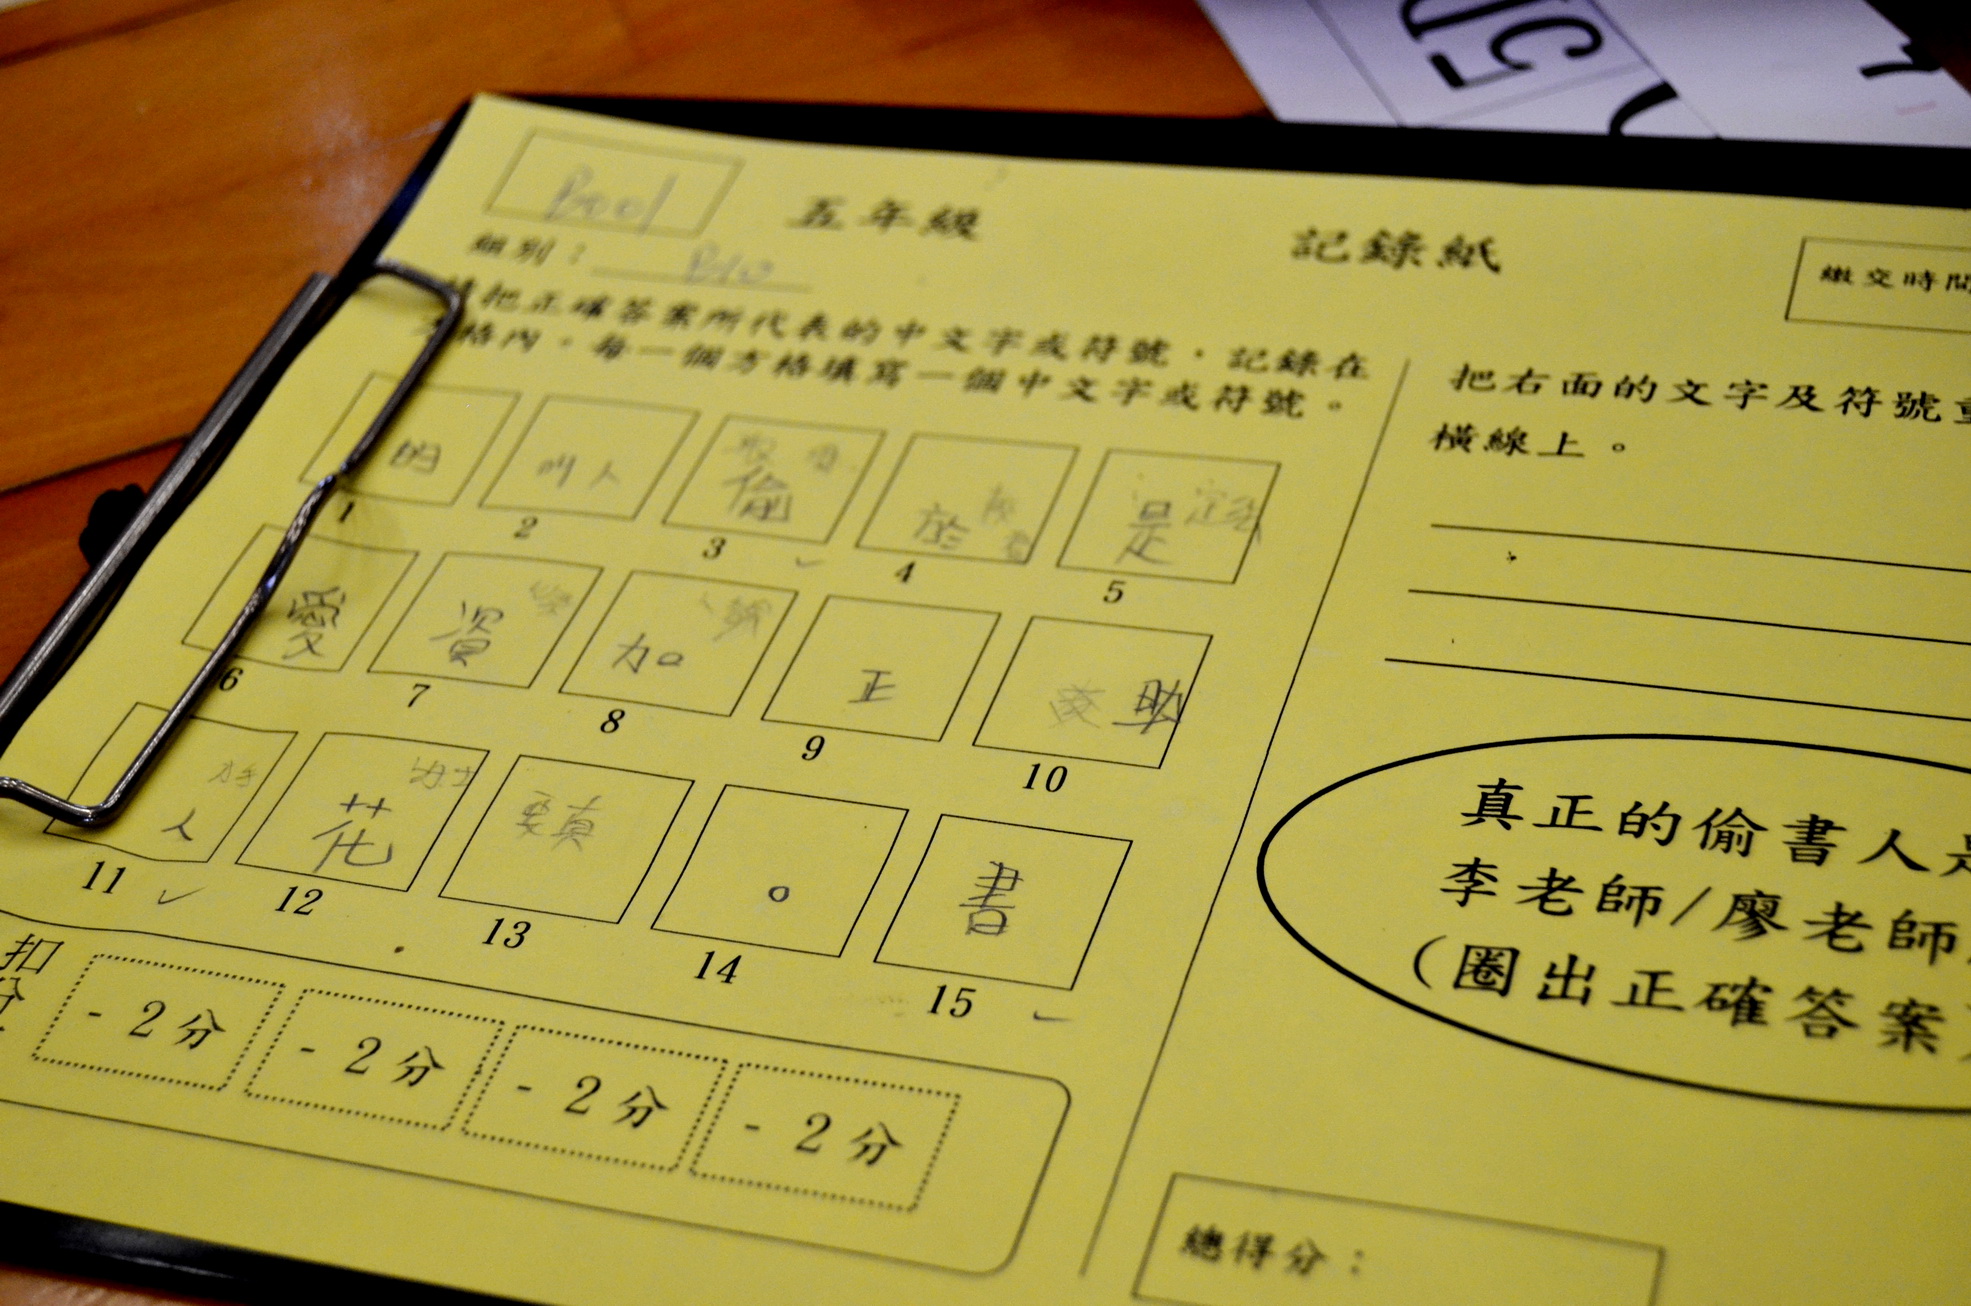 五年級 記錄紙
繳交時間
組別：
把正確答案所代表的中文字或符號，記錄在
格內。每一個方格填寫一個中文字或符號。
的 叫人 偷 於 是
1 2 3 4 5
愛 資 加 正 助
6 7 8 9 10
人 花 要真 。 書
11 12 13 14 15
扣
- 2分 - 2分 - 2分 - 2分
把右面的文字及符號
橫線上。
真正的偷書人是
李老師/廖老師
(圈出正確答案
總得分：